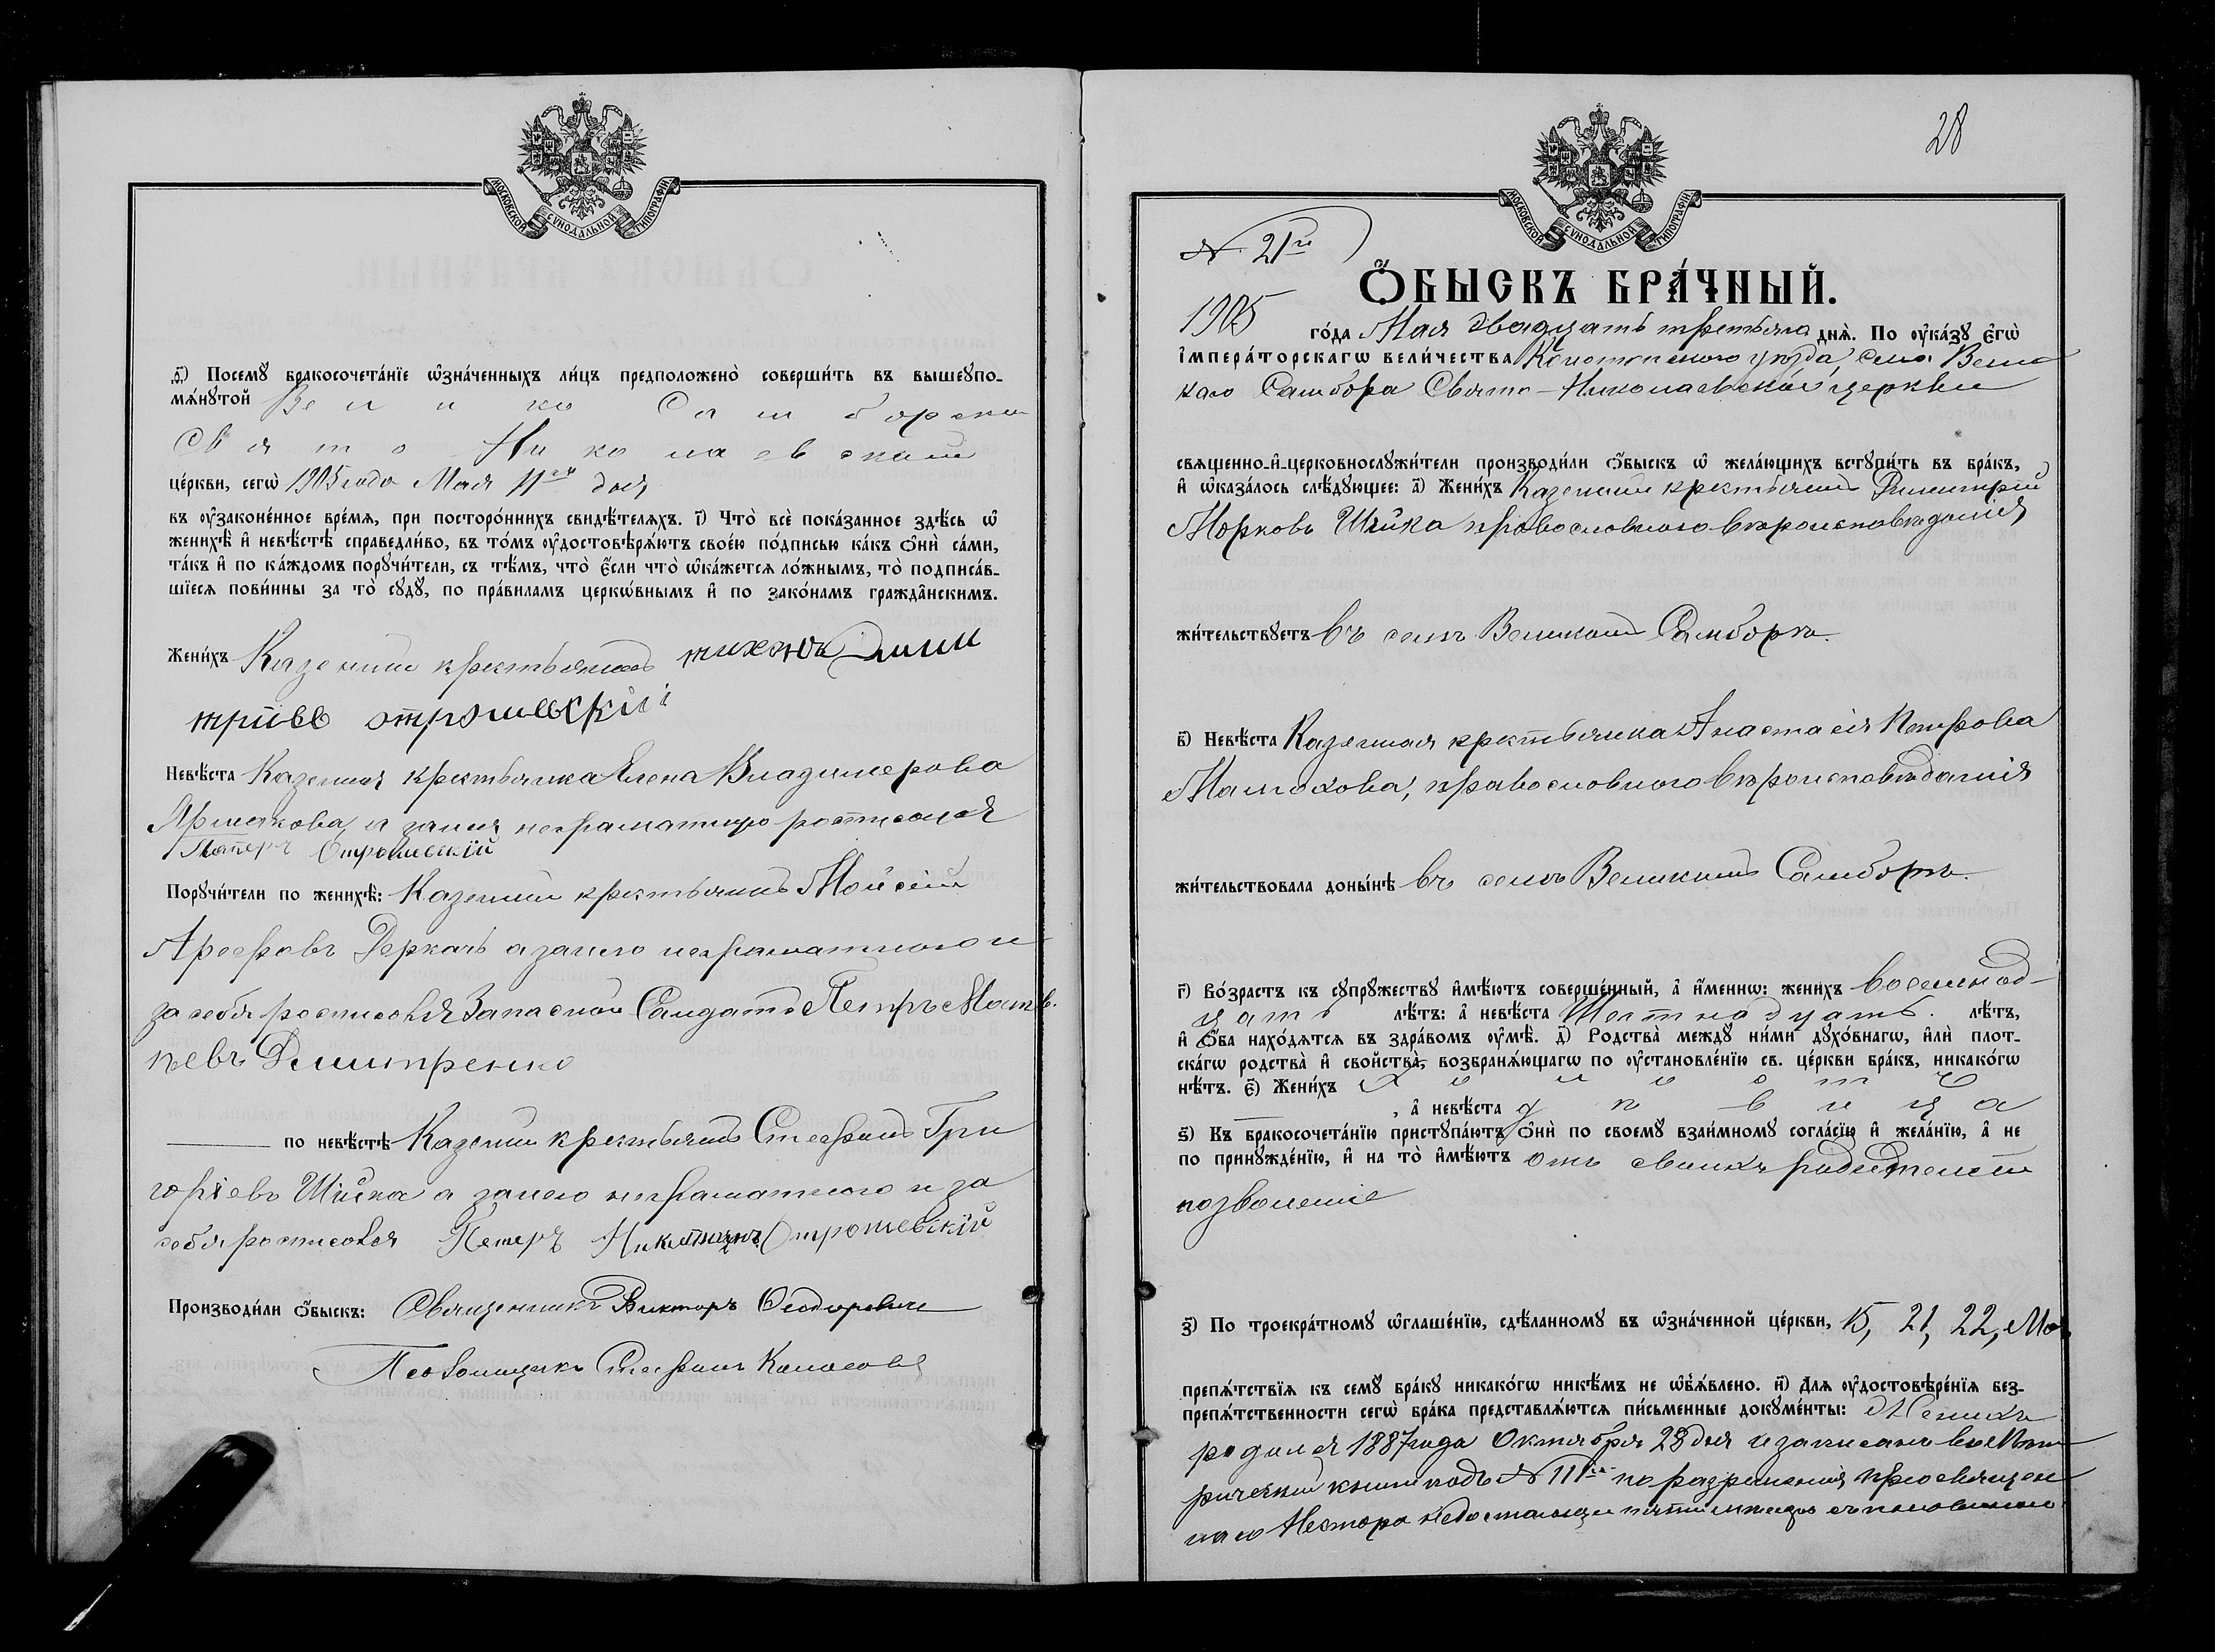 МОСКОВСКОЙ СѴНОДАЛЬНОЙ ТИПОГРАФІИ
ѳ҃) Посемꙋ бракосочета́нїе ѡ҆зна́ченныхъ ли́цъ предположено̀ соверши́ть въ вышеꙋпо-
мѧ́нꙋтой Велико Самборской
Свято-Николаевской
це́ркви, сегѡ̀ 1905 года Мая 11го дня
въ ᲂу҆законе́нное вре́мѧ, при посторо́ннихъ свидѣ́телѧхъ. і҃) Что̀ всѐ пока́занное здѣ́сь ѡ҆
женихѣ̀ и҆ невѣ́стѣ справедли́во, въ то́мъ ᲂу҆достовѣрѧ́ютъ свое́ю по́дписью ка́къ ѻ҆нѝ са́ми,
та́къ и҆ по ка́ждомъ порꙋчи́тели, съ тѣ́мъ, что̀ є҆́сли что̀ ѡ҆ка́жетсѧ ло́жнымъ, то̀ подписа́в-
шїесѧ пови́нны за то̀ сꙋдꙋ̀, по пра́виламъ церко́внымъ и҆ по зако́намъ гражда́нскимъ.
Жени́хъ Казенный крестьянинъ тихонъ Дими
тріевъ отрошевскій
Невѣ́ста Казенная крестьянка Елена Владимерова
Ярмакова, а за нея неграматную росписался
Петеръ Отрошевскій
Порꙋчи́тели по женихѣ̀: Казенный крестьянинъ Мойсей
Арефовъ Деркачъ а за него неграматного и
за себя росписовся Запасной Салдатъ Петръ Матв.
ѣевъ Дмитренко
по невѣ́стѣ Казенный крестьянинъ Стефанъ Гри
горіевъ Шійка а за него неграматного и за
себя росписовся Петеръ Никитинъ Отрошевскій
Производи́ли ѻ҆́быскъ: Священникъ Викторъ Ѳедоровичъ
Псаломщикъ Стефанъ
28
МОСКОВСКОЙ СѴНОДАЛЬНОЙ ТИПОГРАФІИ
N. 21й
Ѻ҆́БЫСКЪ БРА́ЧНЫЙ.
1905 го́да Мая двадцать третьяго днѧ̀. По ᲂу҆ка́зꙋ є҆гѡ̀
і҆мпера́торскагѡ вели́чества Конотопского уѣзда, села Вели
каго Самбора Свято-Николаевской церкви
свѧщенно-и҆-церковнослꙋжи́тели производи́ли ѻ҆́быскъ ѡ҆ жела́ющихъ встꙋпи́ть въ бра́къ,
и҆ ѡ҆каза́лось слѣ́дꙋющее: а҃) Жени́хъ Казенный крестьянинъ Димитрій
Марковъ Шійка православного вѣроисповѣданія
жи́тельствꙋетъ въ селѣ Великомъ Самборѣ.
в҃) Невѣ́ста Казенная крестьянка Анастасія Петрова
православного вѣроисповѣданія
жи́тельствовала доны́нѣ въ селѣ Великомъ Самборѣ.
г҃) Во́зрастъ къ сꙋпрꙋ́жествꙋ и҆мѣ́ютъ соверше́нный, а҆ и҆́меннѡ: жени́хъ восемнад-
цать лѣ́тъ: а҆ невѣ́ста Шестнадцать. лѣ́тъ,
и҆ ѻ҆́ба нахо́дѧтсѧ въ здра́вомъ ᲂу҆мѣ̀. д҃) Родства̀ междꙋ̀ ни́ми дꙋхо́внагѡ, и҆лѝ плот-
ска́гѡ родства̀ и҆ свойства̀, возбранѧ́ющагѡ по ᲂу҆становле́нїю св. це́ркви бра́къ, никако́гѡ
нѣ́тъ. є҃) Жени́хъ Холостъ
, а҆ невѣ́ста дѣвица
ѕ҃) Къ бракосочета́нїю пристꙋпа́ютъ ѻ҆нѝ по своемꙋ̀ взаи́мномꙋ согла́сїю и҆ жела́нїю, а҆ не
по принꙋжде́нїю, и҆ на то̀ и҆мѣ́ютъ отъ своихъ родителей
позволеніе
з҃) По троекра́тномꙋ ѡ҆глаше́нїю, сдѣ́ланномꙋ въ ѡ҆зна́ченной це́ркви, 15, 21, 22, Мая
препѧ́тствїѧ къ семꙋ̀ бра́кꙋ никако́гѡ никѣ́мъ не ѡ҆б̾ѧ́влено. и҃) Длѧ ᲂу҆достовѣре́нїѧ без-
препѧ́тственности сегѡ̀ бра́ка представлѧ́ютсѧ пи́сьменные докꙋме́нты: Женихъ
родился 1887 года Октября 28 дня и записанъ въ Мет
рической книги подъ N 111м по разрешенія преосвящен
наго Нестора недостающе пяти месяцъ съ половиною